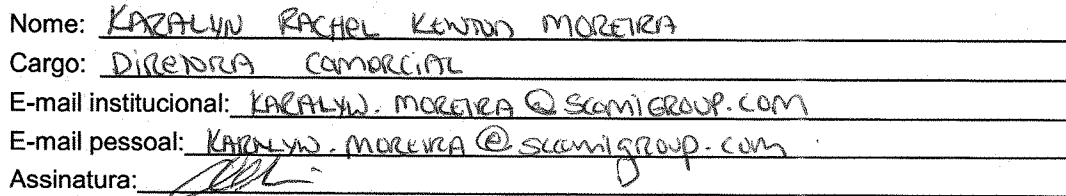 Nome: KARALYN RACHEL KENTON MOREIRA
Cargo: DIRETORA COMERCIAL
E-mail institucional: KARALYN.MOREIRA@SCOMIGROUP.COM
E-mail pessoal: KARALYN.MOREIRA@scomigroup.com
Assinatura: